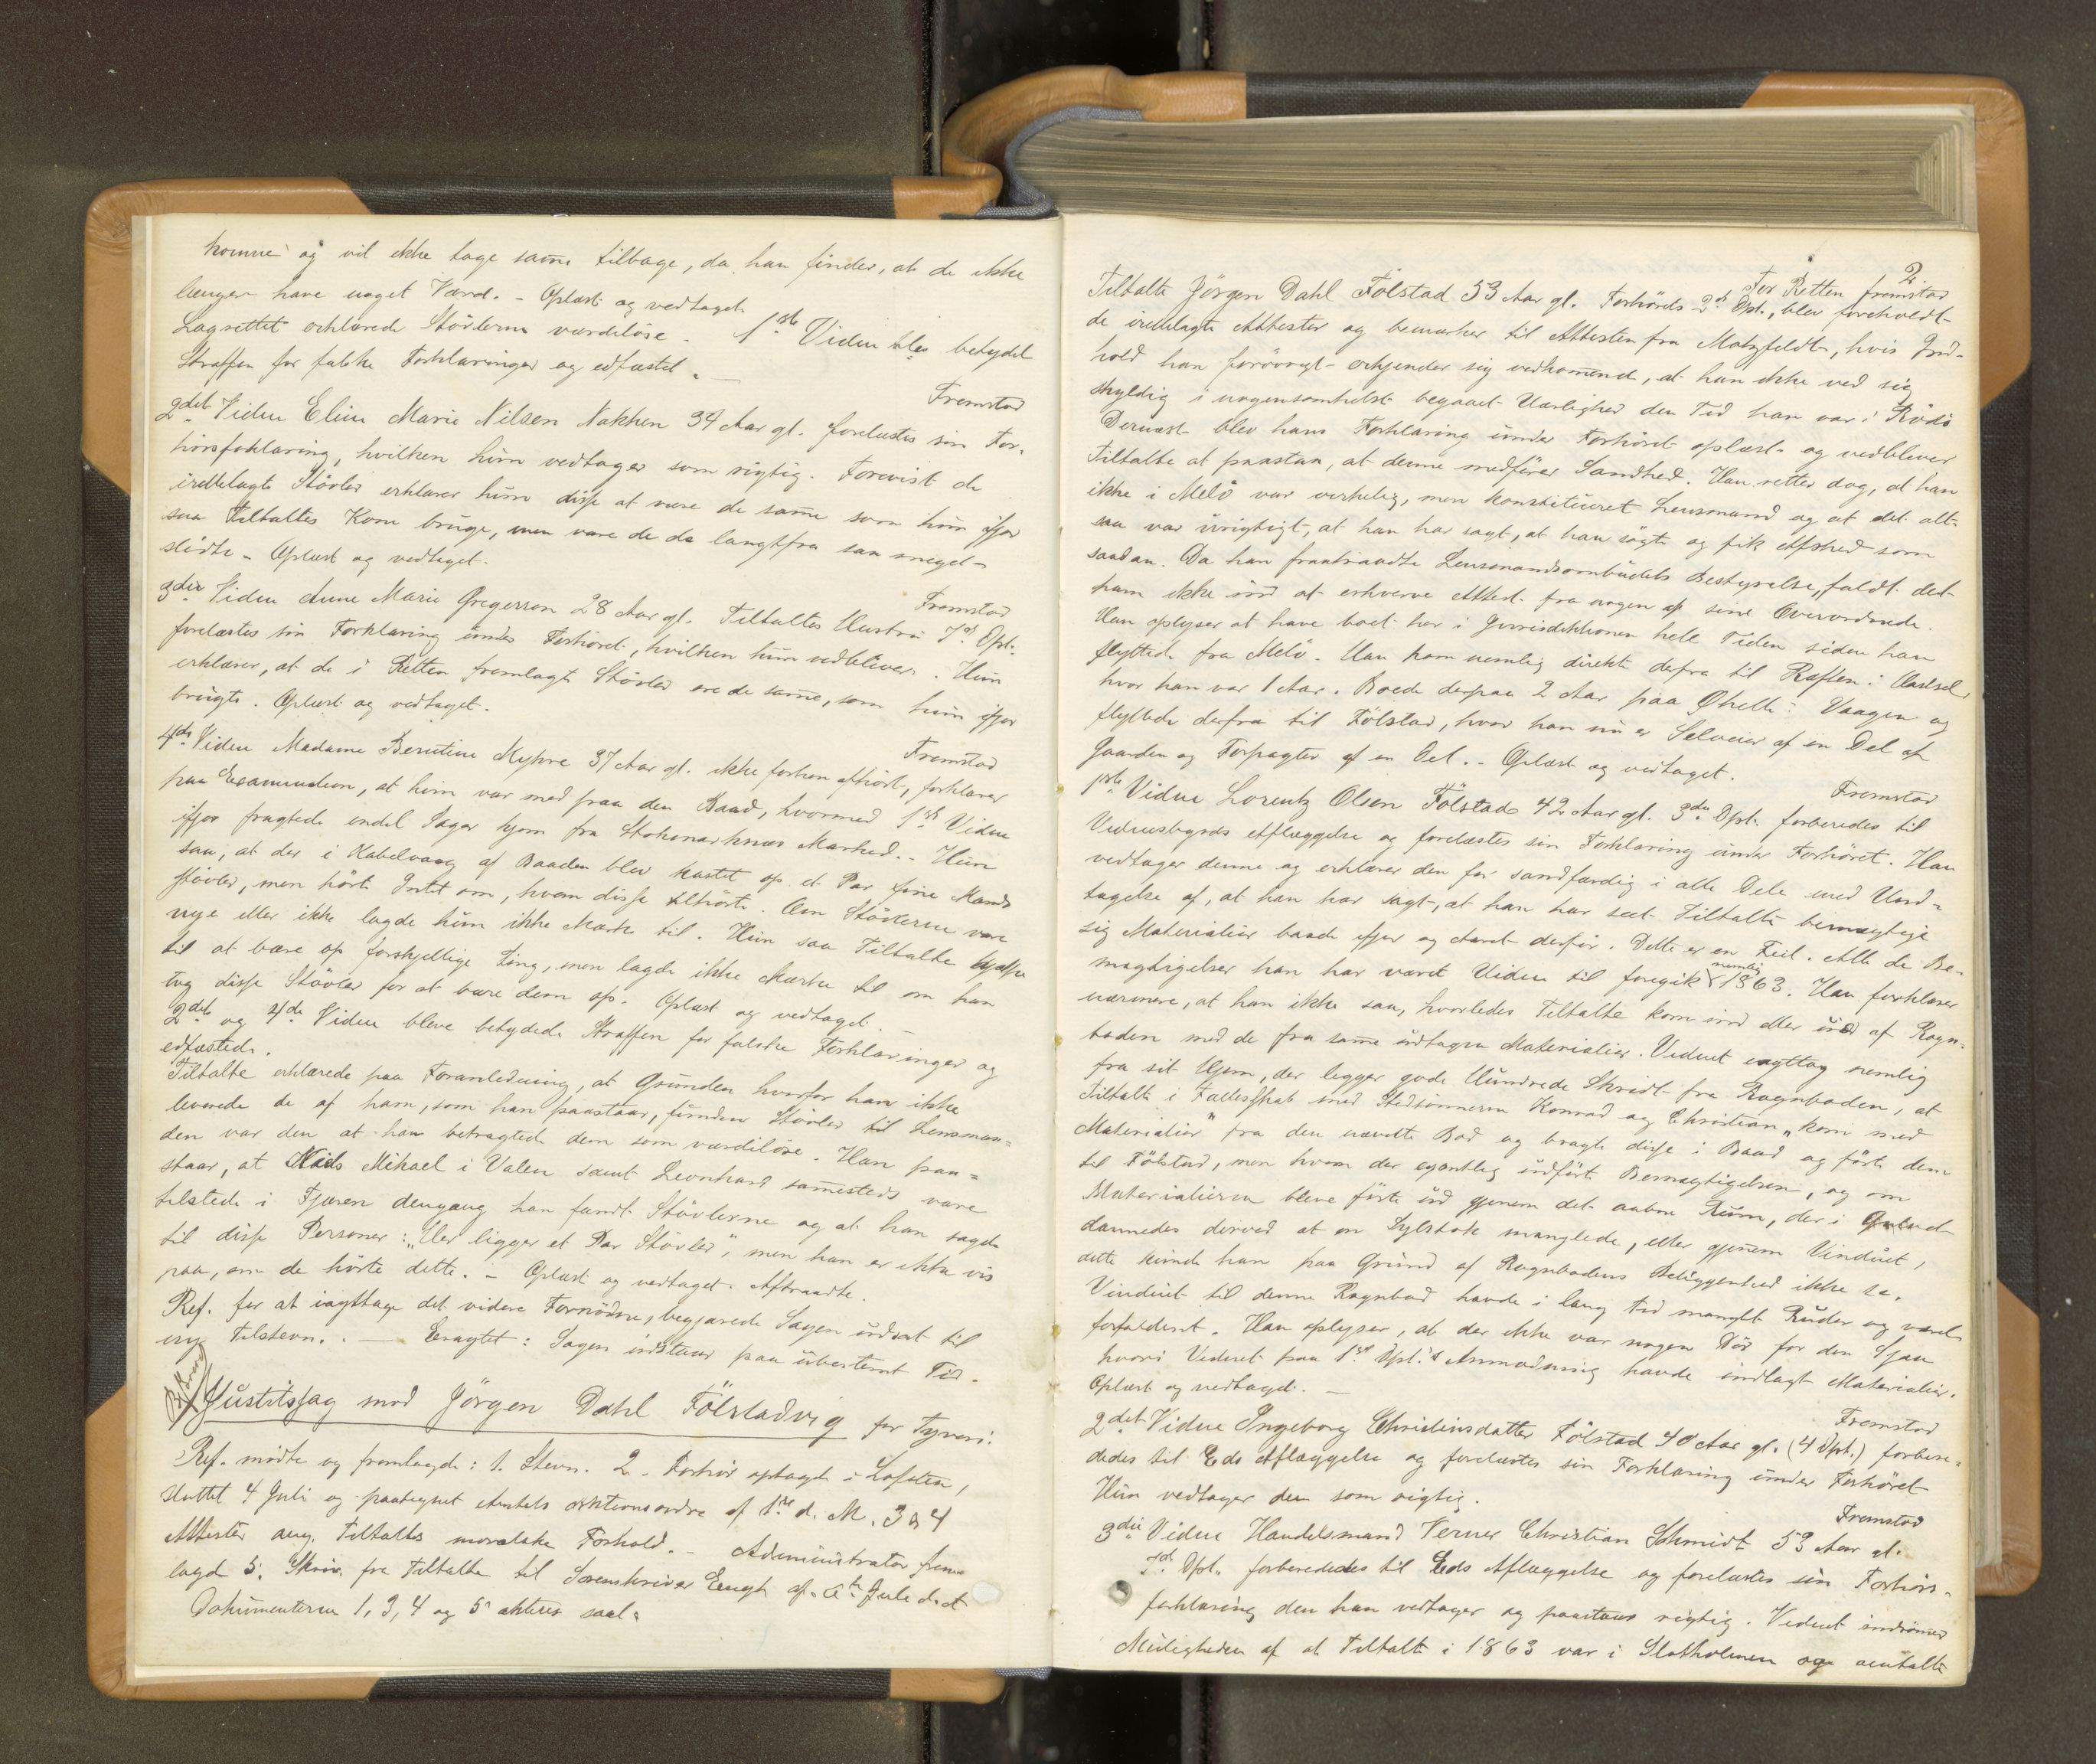 komme og vil ikke tage same tilbage, da han finder, at de ikke
længer have noget Værd. - Oplæst og vedtaget.
Lagrettet erklærede Støvlerne værdiløse. 1ste Vidne blev betydet
Straffen for falske Forklaringer og edfæstet.
Fremstod
2det Vidne Eline Marie Nilsen Nakken 34 Aar gl. forelæstes sin For-
hørsforklaring, hvilken hun vedtager som rigtig. Forevist de
irettelagte Støvler erklærer hun disse at være de same som hun ifjor
saa Tiltaltes Kone bruge, men vare de da langtfra saa meget
slidte - Oplæst og vedtaget.
Fremstod
3die Vidne Anne Marie Gregersen 28 Aar gl. Tiltaltes Hustru 7de Dpt.
forelæstes sin Forklaring under Forhøret, hvilken hun vedbliver. Hun
erklærer, at de i Retten fremlagte Støvler ere de same, som hun ifjor
brugte. Oplæst og vedtaget.
Fremstod
4de Vidne Madame Berntine Myhre 37 Aar gl. ikke forhen afhørt, forklarer
paa Examination, at hun var med paa den Baad, hvormed 1ste Vidne
ifjor fragtede endel Sager hjem fra Stokmarknæs Marked. - Hun
saa, at der i Kabelvaag af Baaden blev kastet op et Par fine Mands
støvler, men hørte Intet om, hvem disse tilhørte. Om Støvlerne vare
nye eller ikke lagde hun ikke Mærke til. Hun saa Tiltalte hjælpe
til at bære op forskjellige Ting, men lagde ikke Mærke til om han
tog disse Støvler for at bære dem op. Oplæst og vedtaget. -
2det og 4de Vidne bleve betydede Straffen for falske Forklaringer og
edfæstede.
Tiltalte erklærede paa Foranledning, at Grunden hvorfor han ikke
leverede de af ham, som han paastaar, fundne Støvler til Lensman-
den var den at han betragtede dem som værdiløse. Han paa-
staar, at Niels Mikael i Valen samt Leonhard samesteds vare
tilstede i Fjæren dengang han fandt Støvlerne og at han sagde
til disse Personer: "Der ligger et Par Støvler", men han er ikke vis
paa, om de hørte dette. - Oplæst og vedtaget. Aftraadte.
Ref. for at iagttage det videre Fornødne, begjærede Sagen udsat til
ny Tilstevn. - Eragtet: Sagen udstaar paa ubestemt Tid.
Justitssag mod Jörgen Dahl Fölstadvig for Tyveri.
Ref. mødte og fremlagde: 1. Stevn. 2. Forhør optaget i Lofoten,
sluttet 4 Juli og paategnet Amtets aktionsordre af 1ste d. M. 3 & 4
Attester ang. Tiltaltes moralske Forhold. - Administrator frem-
lagde 5. Skriv. fra Tiltalte til Sorenskriver Eengh af Juli d. A.
Dokumenterne 1, 3, 4 og 5 akteres saal.
2.
For Retten fremstod
Tiltalte Jörgen Dahl Fölstad 53 Aar gl. Forhørets 2det Dpt., blev foreholdt
de irettelagte Attester og bemærker til Attesten fra Motzfeldt, hvis Ind-
hold han forøvrigt erkjender sig vedkomende, at han ikke ved sig
skyldig i nogensomhelst begaaet Uærlighed den Tid han var i Rödö
Dernæst blev hans Forklaring under Forhöret oplæst og vedbliver
Tiltalte at paastaa, at denne medfører Sandhed. Han retter dog, at han
ikke i Melö var virkelig, men konstitueret Lensmand og at det alt-
saa var urigtigt, at han har sagt, at han søgte og fik Afsked som
saadan. Da han fraatraadte Lensmandsombudets Bestyrelse, faldt det
ham ikke ind at erhverve Attest fra nogen af sine Overordnede.
Han oplyser at have boet her i Jurisdiktionen hele Tiden siden han
flyttede fra Melö. Han kom nemlig direkte derfra til Raften i Hadsel
hvor han var 1 Aar. Boede derpaa 2 Aar paa Ørelle i Vaagen og
flyttede derfra til Fölstad, hvor han nu er Selveier af en Del af
Gaarden og Forpagter af en Del. - Oplæst og vedtaget.
Fremstod
1ste Vidne Lorentz Olsen Fölstad 42 Aar gl. 3die Dpt. forberedes til
Vidnesbyrds Aflæggelse og forelæstes sin Forklaring under Forhøret. Han
vedtager denne og erklærer den for sandfærdig i alle Dele med Und-
tagelse af, at han har sagt, at han har seet Tiltalte bemægtige
sig Materialier baade ifjor og Aaret derfør. Dette er en Feil. Alle de Be-
mægtigelser han har været Vidne til foregik nemlig 1863. Han forklarer
nærmere, at han ikke saa, hvorledes Tiltalte kom ind eller ud af Rogn-
boden med de fra same udtagne Materialier. Vidnet iagttog nemlig
fra sit Hjem, der ligger gode Hundrede Skridt fra Rognboden, at
Tiltalte i Fællesskab med Stedsønnerne Konrad og Christian "kom med
Materialier" fra den nævnte Bod og bragte disse i Baad og førte dem
til Fölstad, men hvem der egentlig udførte Bemægtigelsen, og om
Materialierne bleve førte ud gjenem det aabne Rum, der i
dannedes derved at en Sylstok manglede, eller gjenem Vinduet,
dette kunde han paa Grund af Rognbodens Beliggenhed ikke se.
Vinduet til denne Rognbod havde i lang tid manglet Ruder og været
forfaldent. Han oplyser, at der ikke var nogen Dør for den Sjaa
hvori Vidnet paa 1ste Dpt.'s Anmodning havde indlagt Materialier.
Oplæst og vedtaget. -
Fremstod
2det Vidne Ingeborg Christinsdatter Fölstad 40 Aar gl. (4 Dpt.) forbere-
dedes til Eds Aflæggelse og forelæstes sin Forklaring under Forhøret
Hun vedtager den som rigtig.
Fremstod
3die Vidne Handelsmand Verner Christian Schmidt 53 Aar gl.
Dpt. forberededes til Eds Aflæggelse og forelæstes sin Forhørs-
forklaring, den han vedtager og paastaar rigtig. Vidnet indrømmer
Muligheden af at Tiltalte i 1863 var i Slotholmen og omtalte